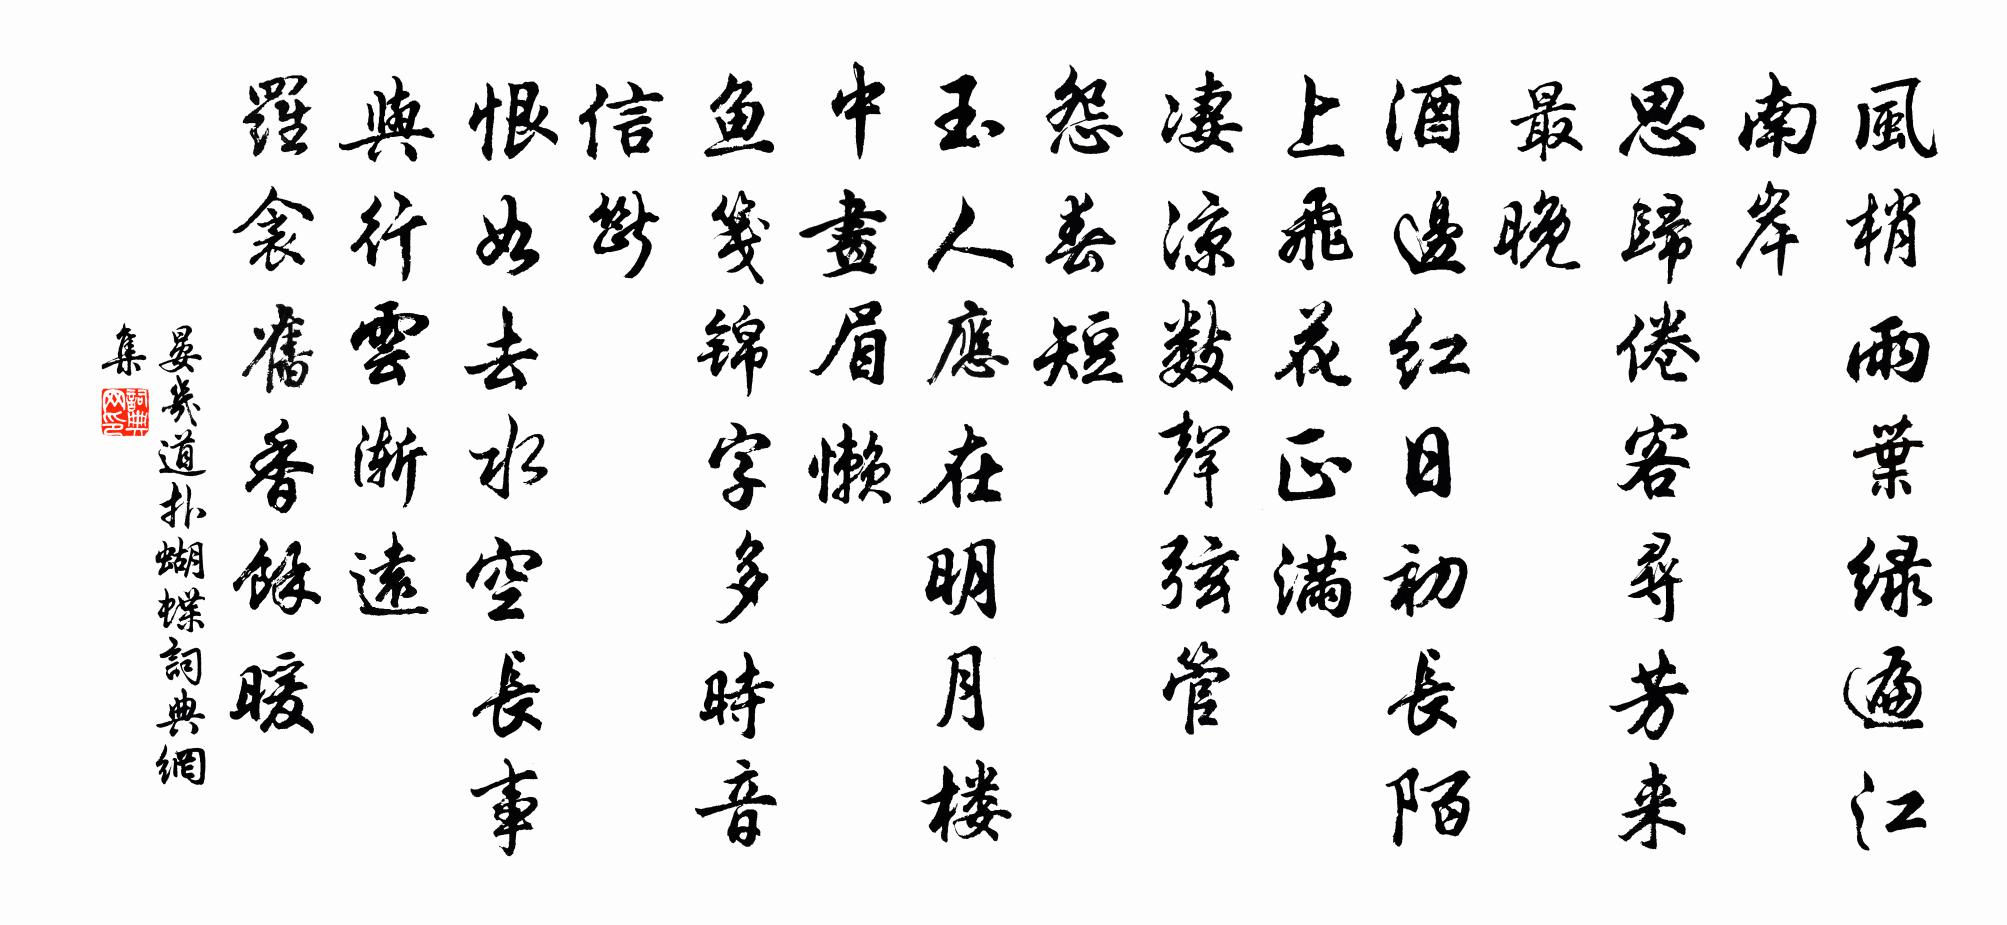 風梢雨葉緑遍江
南岸
思歸倦客尋芳来
最晚
酒邊红日初長陌
上飛花正满
凄涼數聲弦管
怨春短
玉人應在明月楼
中畫眉懒
魚箋锦字多時音
信斷
恨如去水空長事
與行雲漸遠
羅衾舊香餘暖
晏幾道扑蝴蝶詞典網
集
詞典網印